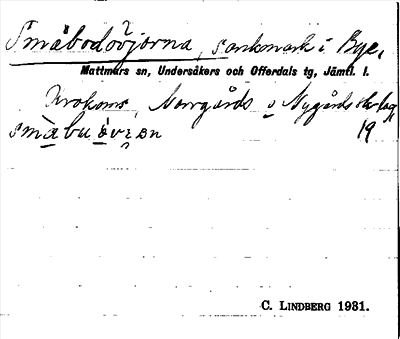 Småbodövjorna, sankmark i Bye,
Mattmars sn, Undersåkers och Offerdals tg, Jämtl. l.
Krokoms, Norrgårds o Nygårds
19
C. LINDBERG 1931.